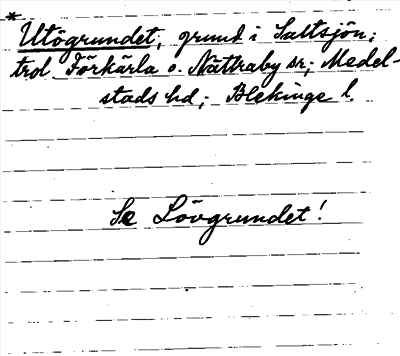 *
Utögrundet, grund i Saltsjön;
trol. Förkärla o. Nättraby sr; Medel-
stads hd; Blekinge l.
Se Lövgrundet!